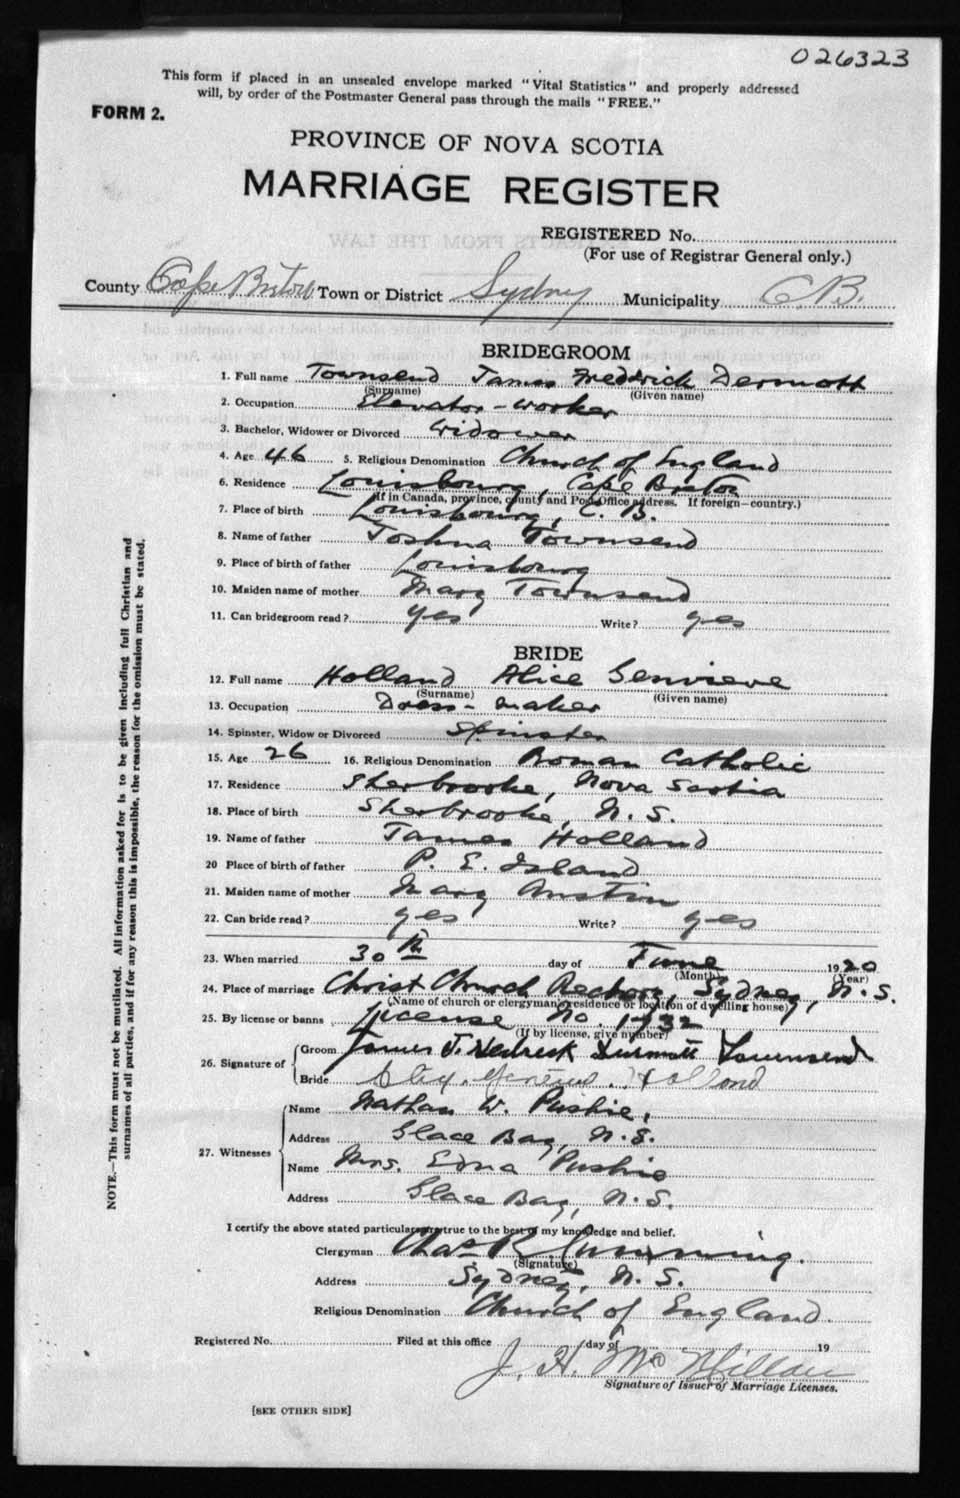 026323
This form if placed in an unsealed envelope marked "Vital Statistics" and properly addressed
will, by order of the Postmaster General pass through the mails "FREE."
FORM 2.
PROVINCE OF NOVA SCOTIA
MARRIAGE REGISTER
REGISTERED No.
(For use of Registrar General only.)
County Cape Breton Town or District Sydney Municipality C.B.
BRIDEGROOM
1. Full name Townsend James Fredrick Dermott
(Surname) (Given name)
2. Occupation Elevator-worker
3. Bachelor, Widower or Divorced Widower
4. Age 46 5. Religious Denomination Church of England
6. Residence Louisbourg, Cape Breton
(If in Canada, province, county and Post Office address. If foreign—country.)
7. Place of birth Louisbourg, C. B.
8. Name of father Joshua Townsend
9. Place of birth of father Louisbourg
10. Maiden name of mother Mary Townsend
11. Can bridegroom read? yes Write? yes
BRIDE
12. Full name Holland Alice Genvieve
(Surname) (Given name)
13. Occupation Dress-maker
14. Spinster, Widow or Divorced Spinster
15. Age 26 16. Religious Denomination Roman Catholic
17. Residence Sherbrooke, Nova Scotia
18. Place of birth Sherbrooke, N. S.
19. Name of father James Holland
20 Place of birth of father P. E. Island
21. Maiden name of mother Mary Austin
22. Can bride read? yes Write? yes
23. When married 30th day of June 1920
(Month) (Year)
24. Place of marriage Christ Church Rectory, Sydney, N. S.
(Name of church or clergyman's residence or location of dwelling house)
25. By license or banns License No. 1732
(If by license, give number)
26. Signature of Groom James F. Dermott Townsend
Bride Holland
27. Witnesses
Name Nathan W. Pushie,
Address Glace Bay, N. S.
Name Mrs. Edna Pushie
Address Glace Bay, N. S.
I certify the above stated particulars are true to the best of my knowledge and belief.
Clergyman Chas R Cumming.
(Signature)
Address Sydney, N. S.
Religious Denomination Church of England.
Registered No. Filed at this office day of 19
J. H. McMillan
Signature of Issuer of Marriage Licenses.
[SEE OTHER SIDE]
NOTE.—This form must not be mutilated. All information asked for is to be given including full Christian and
surnames of all parties, and if for any reason this is impossible, the reason for the omission must be stated.